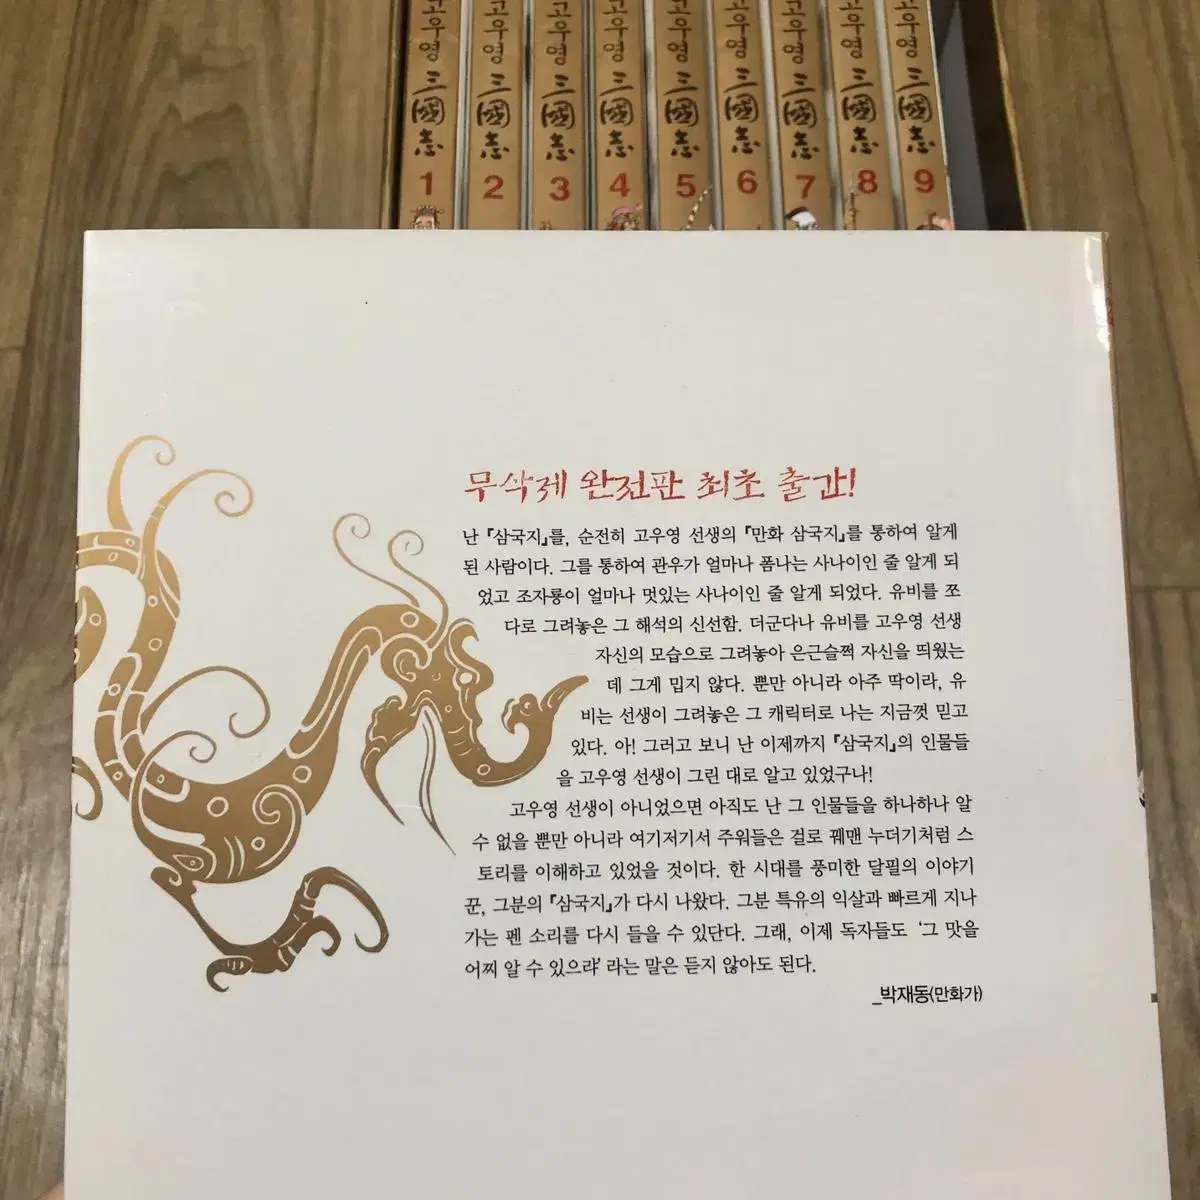 고우영 三國志 1
고우영 三國志 2
고우영 三國志 3
고우영 三國志 4
고우영 三國志 5
고우영 三國志 6
고우영 三國志 7
고우영 三國志 8
고우영 三國志 9
무삭제 완전판 최초 출간!
난 『삼국지』를, 순전히 고우영 선생의 『만화 삼국지』를 통하여 알게
된 사람이다. 그를 통하여 관우가 얼마나 폼나는 사나이인 줄 알게 되
었고 조자룡이 얼마나 멋있는 사나이인 줄 알게 되었다. 유비를 쪼
다로 그려놓은 그 해석의 신선함. 더군다나 유비를 고우영 선생
자신의 모습으로 그려놓아 은근슬쩍 자신을 띄웠는
데 그게 밉지 않다. 뿐만 아니라 아주 딱이라, 유
비는 선생이 그려놓은 그 캐릭터로 나는 지금껏 믿고
있다. 아! 그러고 보니 난 이제까지 『삼국지』의 인물들
을 고우영 선생이 그린 대로 알고 있었구나!
고우영 선생이 아니었으면 아직도 난 그 인물들을 하나하나 알
수 없을 뿐만 아니라 여기저기서 주워들은 걸로 꿰맨 누더기처럼 스
토리를 이해하고 있었을 것이다. 한 시대를 풍미한 달필의 이야기
꾼, 그분의 『삼국지』가 다시 나왔다. 그분 특유의 익살과 빠르게 지나
가는 펜 소리를 다시 들을 수 있단다. 그래, 이제 독자들도 ‘그 맛을
어찌 알 수 있으랴’ 라는 말은 듣지 않아도 된다.
_박재동(만화가)